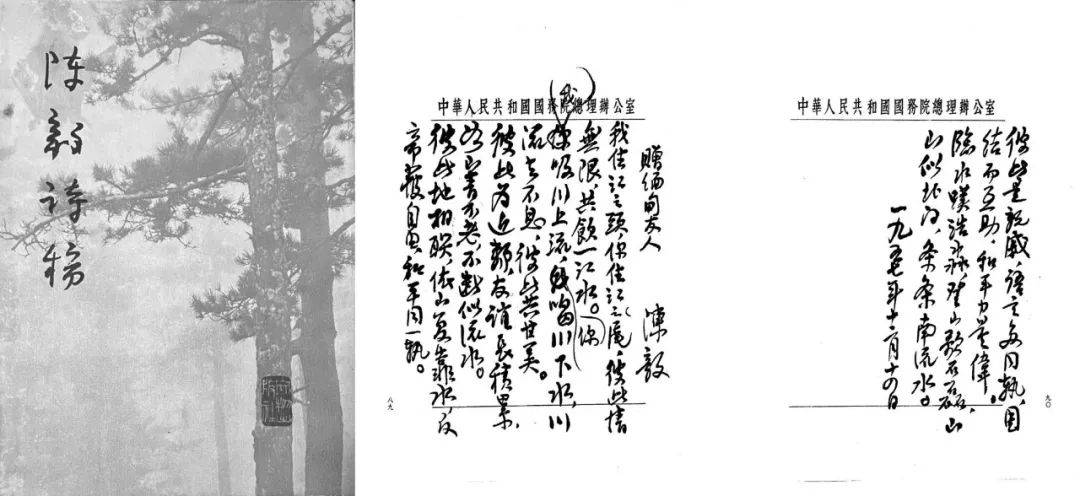 陈毅诗稿
中華人民共和國國務院總理辦公室
赠缅甸友人
陳毅
我住江之頭,你住江之尾,彼此情
無限,共飲一江水。(你)
(我)吸川上流,喝川下水,川
流去不息,彼此共甘美。
彼此为近鄰,友谊長積累,
山青不老,不断似流水。
彼此地相联,依山复靠水。反
帝獲自由,和平同一轨。
八九
中華人民共和國國務院總理辦公室
彼此是親戚,语言多同轨,团
结而互助,和平力量偉。
臨水嘆浩淼,登山歌石磊,山
山似北向,条条南流水。
一九五七年十二月十四日
九〇